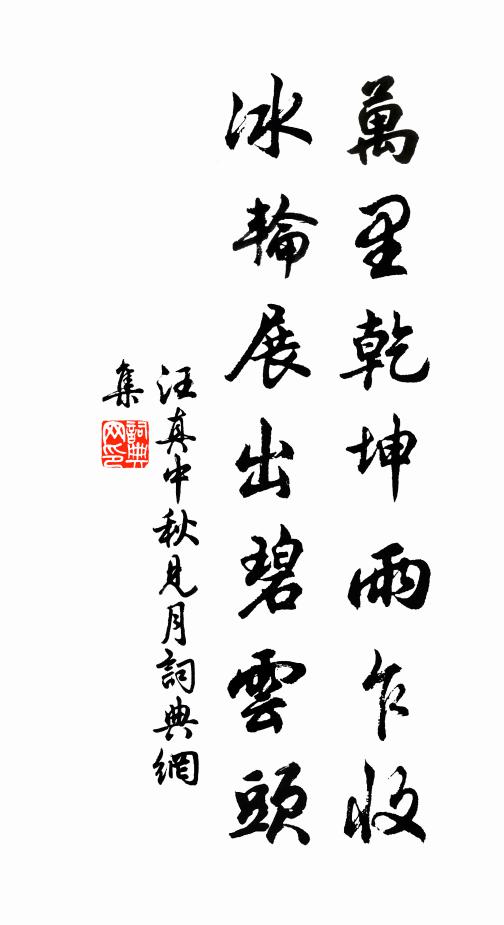 萬里乾坤雨乍收
冰輪展出碧雲頭
汪真中秋見月詞典網
集
詞典网印